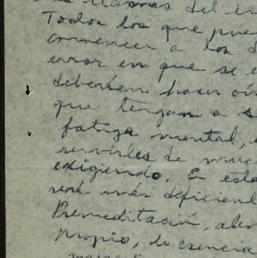 del
Todos los que pue
convencer a los d
error en que se e
deberían hacer
que tengan a s
fatiga mental,
servirles de muc
exigiendo. En esta
será más deficien
Premeditación, ale
propio, de esencia